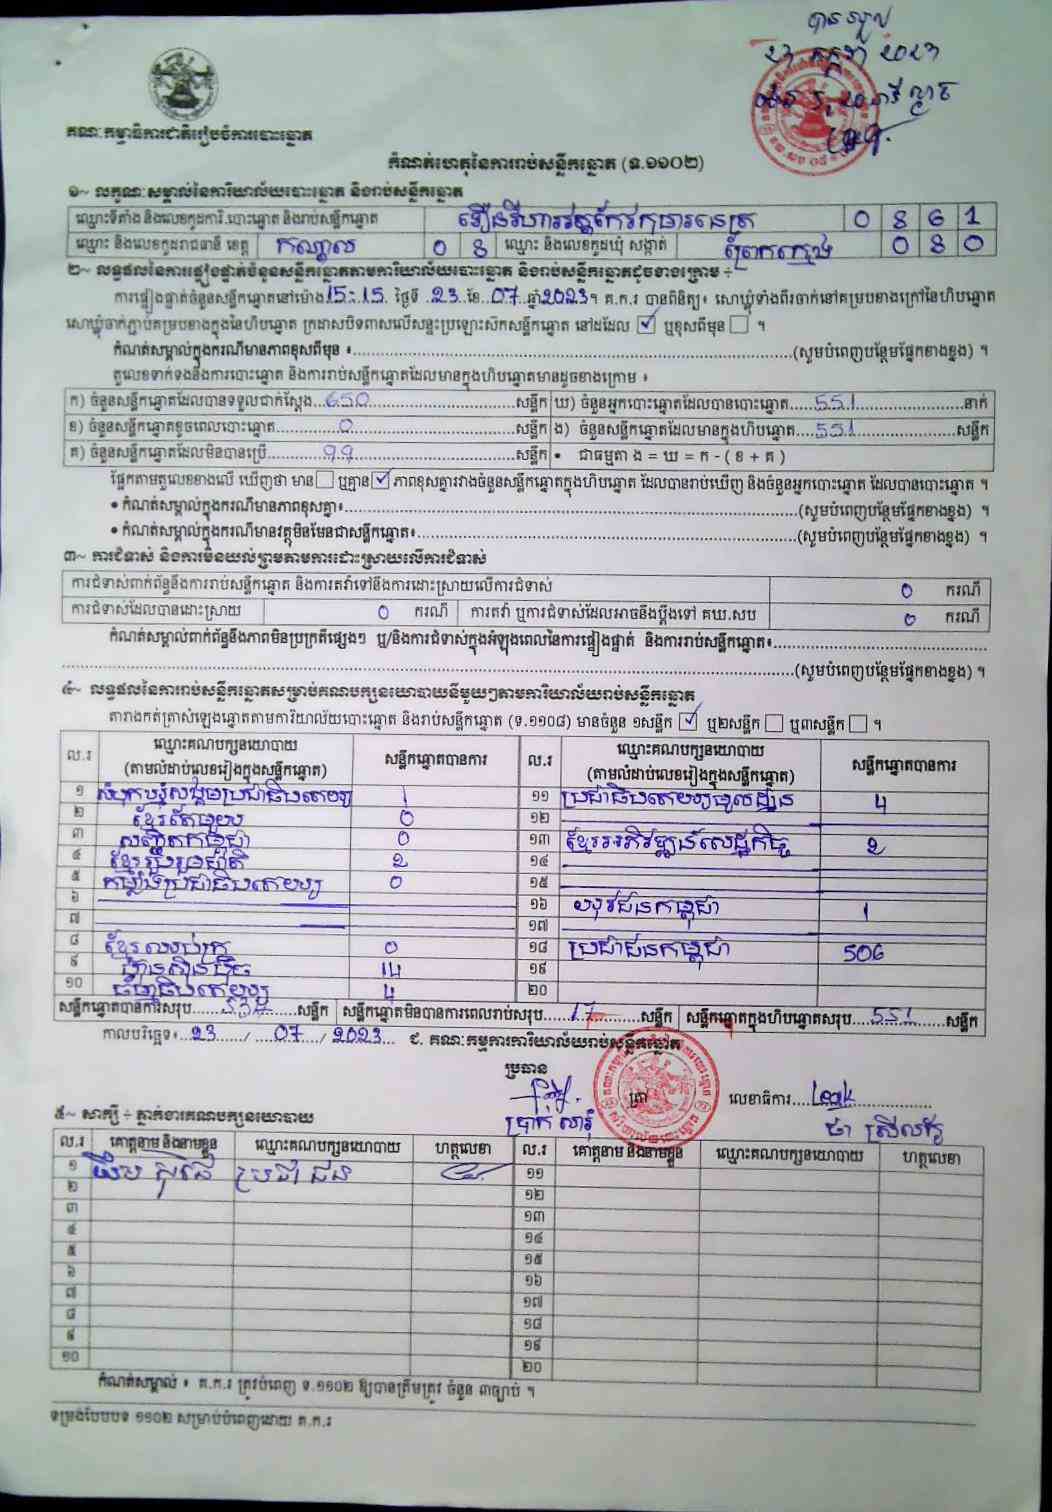 បានទទួល
គណៈកម្មាធិការជាតិរៀបចំការបោះឆ្នោត
កំណត់ហេតុនៃការរាប់សន្លឹកឆ្នោត (ទ.១១០២)
១~ លក្ខណៈសម្គាល់នៃការិយាល័យបោះឆ្នោត និងរាប់សន្លឹកឆ្នោត
ឈ្មោះទីតាំង និងលេខកូដការិ.បោះឆ្នោត និងរាប់សន្លឹកឆ្នោត 0 8 6 1
ឈ្មោះ និងលេខកូដរាជធានី ខេត្ត កណ្តាល 0 8 ឈ្មោះ និងលេខកូដឃុំ សង្កាត់ 0 8 0
២~ លទ្ធផលនៃការផ្ទៀងផ្ទាត់ចំនួនសន្លឹកឆ្នោតតាមការិយាល័យបោះឆ្នោត និងរាប់សន្លឹកឆ្នោតដូចខាងក្រោម ÷
ការផ្ទៀងផ្ទាត់ចំនួនសន្លឹកឆ្នោតនៅម៉ោង 15:15 ថ្ងៃទី 23 ខែ 07 ឆ្នាំ 2023។ គ.ក.រ បានពិនិត្យ៖ សោឃ្លុំទាំងពីរចាក់នៅគម្របខាងក្រៅនៃហិបឆ្នោត
សោឃ្លុំចាក់ភ្ជាប់គម្របខាងក្នុងនៃហិបឆ្នោត ក្រដាសបិទពាសលើសន្ទះប្រឡោះស៊កសន្លឹកឆ្នោត នៅដដែល ☑ ឬខុសពីមុន ☐ ។
កំណត់សម្គាល់ក្នុងករណីមានភាពខុសពីមុន ៖..........(សូមបំពេញបន្ថែមផ្នែកខាងខ្នង) ។
តួលេខទាក់ទងនឹងការបោះឆ្នោត និងការរាប់សន្លឹកឆ្នោតដែលមានក្នុងហិបឆ្នោតមានដូចខាងក្រោម ៖
ក) ចំនួនសន្លឹកឆ្នោតដែលបានទទួលជាក់ស្តែង...650...សន្លឹក ឃ) ចំនួនអ្នកបោះឆ្នោតដែលបានបោះឆ្នោត...551...នាក់
ខ) ចំនួនសន្លឹកឆ្នោតខូចពេលបោះឆ្នោត...0...សន្លឹក ង) ចំនួនសន្លឹកឆ្នោតដែលមានក្នុងហិបឆ្នោត...551...សន្លឹក
គ) ចំនួនសន្លឹកឆ្នោតដែលមិនបានប្រើ...99...សន្លឹក • ជាធម្មតា ង = ឃ = ក - ( ខ + គ )
ផ្អែកតាមតួលេខខាងលើ ឃើញថា មាន ☐ ឬគ្មាន ☑ ភាពខុសគ្នារវាងចំនួនសន្លឹកឆ្នោតក្នុងហិបឆ្នោត ដែលបានរាប់ឃើញ និងចំនួនអ្នកបោះឆ្នោត ដែលបានបោះឆ្នោត ។
• កំណត់សម្គាល់ក្នុងករណីមានភាពខុសគ្នា៖..........(សូមបំពេញបន្ថែមផ្នែកខាងខ្នង) ។
• កំណត់សម្គាល់ក្នុងករណីមានវត្ថុមិនមែនជាសន្លឹកឆ្នោត៖..........(សូមបំពេញបន្ថែមផ្នែកខាងខ្នង) ។
៣~ ការជំទាស់ និងការមិនយល់ព្រមតាមការដោះស្រាយលើការជំទាស់
ការជំទាស់ពាក់ព័ន្ធនឹងការរាប់សន្លឹកឆ្នោត និងការតវ៉ាទៅនឹងការដោះស្រាយលើការជំទាស់ 0 ករណី
ការជំទាស់ដែលបានដោះស្រាយ 0 ករណី ការតវ៉ា ឬការជំទាស់ដែលអាចនឹងប្តឹងទៅ គឃ.សប 0 ករណី
កំណត់សម្គាល់ពាក់ព័ន្ធនឹងភាពមិនប្រក្រតីផ្សេងៗ ឬ/និងការជំទាស់ក្នុងអំឡុងពេលនៃការផ្ទៀងផ្ទាត់ និងការរាប់សន្លឹកឆ្នោត៖..........
..........(សូមបំពេញបន្ថែមផ្នែកខាងខ្នង) ។
៤~ លទ្ធផលនៃការរាប់សន្លឹកឆ្នោតសម្រាប់គណបក្សនយោបាយនីមួយៗតាមការិយាល័យរាប់សន្លឹកឆ្នោត
តារាងកត់ត្រាសំឡេងឆ្នោតតាមការិយាល័យបោះឆ្នោត និងរាប់សន្លឹកឆ្នោត (ទ.១១០៨) មានចំនួន ១សន្លឹក ☑ ឬ២សន្លឹក ☐ ឬ៣សន្លឹក ☐ ។
ល.រ ឈ្មោះគណបក្សនយោបាយ (តាមលំដាប់លេខរៀងក្នុងសន្លឹកឆ្នោត) សន្លឹកឆ្នោតបានការ ល.រ ឈ្មោះគណបក្សនយោបាយ (តាមលំដាប់លេខរៀងក្នុងសន្លឹកឆ្នោត) សន្លឹកឆ្នោតបានការ
១ សំបុកឃ្មុំសង្គមប្រជាធិបតេយ្យ 1 ១១ ប្រជាធិបតេយ្យមូលដ្ឋាន 4
២ ខ្មែរតែមួយ 0 ១២
៣ 0 ១៣ ខ្មែរអភិវឌ្ឍន៍សេដ្ឋកិច្ច 2
៤ ខ្មែររួបរួមជាតិ 2 ១៤
៥ កម្លាំងប្រជាធិបតេយ្យ 0 ១៥
៦ ១៦ យុវជនកម្ពុជា 1
៧ ១៧
៨ 0 ១៨ ប្រជាជនកម្ពុជា 506
៩ ហ្វ៊ុនស៊ិនប៉ិច 14 ១៩
១០ ធម្មាធិបតេយ្យ 4 ២០
សន្លឹកឆ្នោតបានការសរុប...534...សន្លឹក សន្លឹកឆ្នោតមិនបានការពេលរាប់សរុប...17...សន្លឹក សន្លឹកឆ្នោតក្នុងហិបឆ្នោតសរុប...551...សន្លឹក
កាលបរិច្ឆេទ៖ 23 / 07 / 2023 ជ. គណៈកម្មការការិយាល័យរាប់សន្លឹកឆ្នោត
ប្រធាន
ត្រា លេខាធិការ..........
ប្រាក់ សារុំ ថា ស្រីលក្ខ
៥~ សាក្សី ÷ ភ្នាក់ងារគណបក្សនយោបាយ
ល.រ គោត្តនាម និងនាមខ្លួន ឈ្មោះគណបក្សនយោបាយ ហត្ថលេខា ល.រ គោត្តនាម និងនាមខ្លួន ឈ្មោះគណបក្សនយោបាយ ហត្ថលេខា
១ ប្រជាជន ១១
២ ១២
៣ ១៣
៤ ១៤
៥ ១៥
៦ ១៦
៧ ១៧
៨ ១៨
៩ ១៩
១០ ២០
កំណត់សម្គាល់ ៖ គ.ក.រ ត្រូវបំពេញ ទ.១១០២ ឱ្យបានត្រឹមត្រូវ ចំនួន ៣ច្បាប់ ។
ទម្រង់បែបបទ ១១០២ សម្រាប់បំពេញដោយ គ.ក.រ